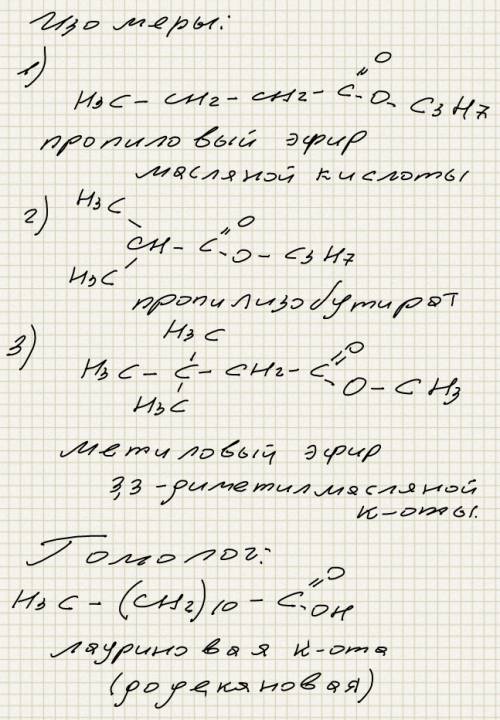 Изомеры:
1) H3C – CH2 – CH2 – C(=O) – O – C3H7
пропиловый эфир
масляной кислоты
2) H3C
CH – C(=O) – O – C3H7
H3C
пропилизобутират
3) H3C
H3C – C – CH2 – C(=O) – O – CH3
H3C
метиловый эфир
3,3-диметилмасляной
к-оты.
Гомолог:
H3C – (CH2)10 – C(=O) OH
лауриновая к-ота
(додекановая)